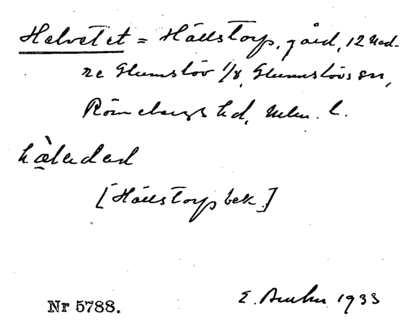 Helvetet = Hällstorp, gård, 12 Ned-
re Glumslöv 1/8, Glumslövs sn,
Rönnebergs hd, Mlm. l.
[Hällstorp bek.]
Nr 5788. E. 1933